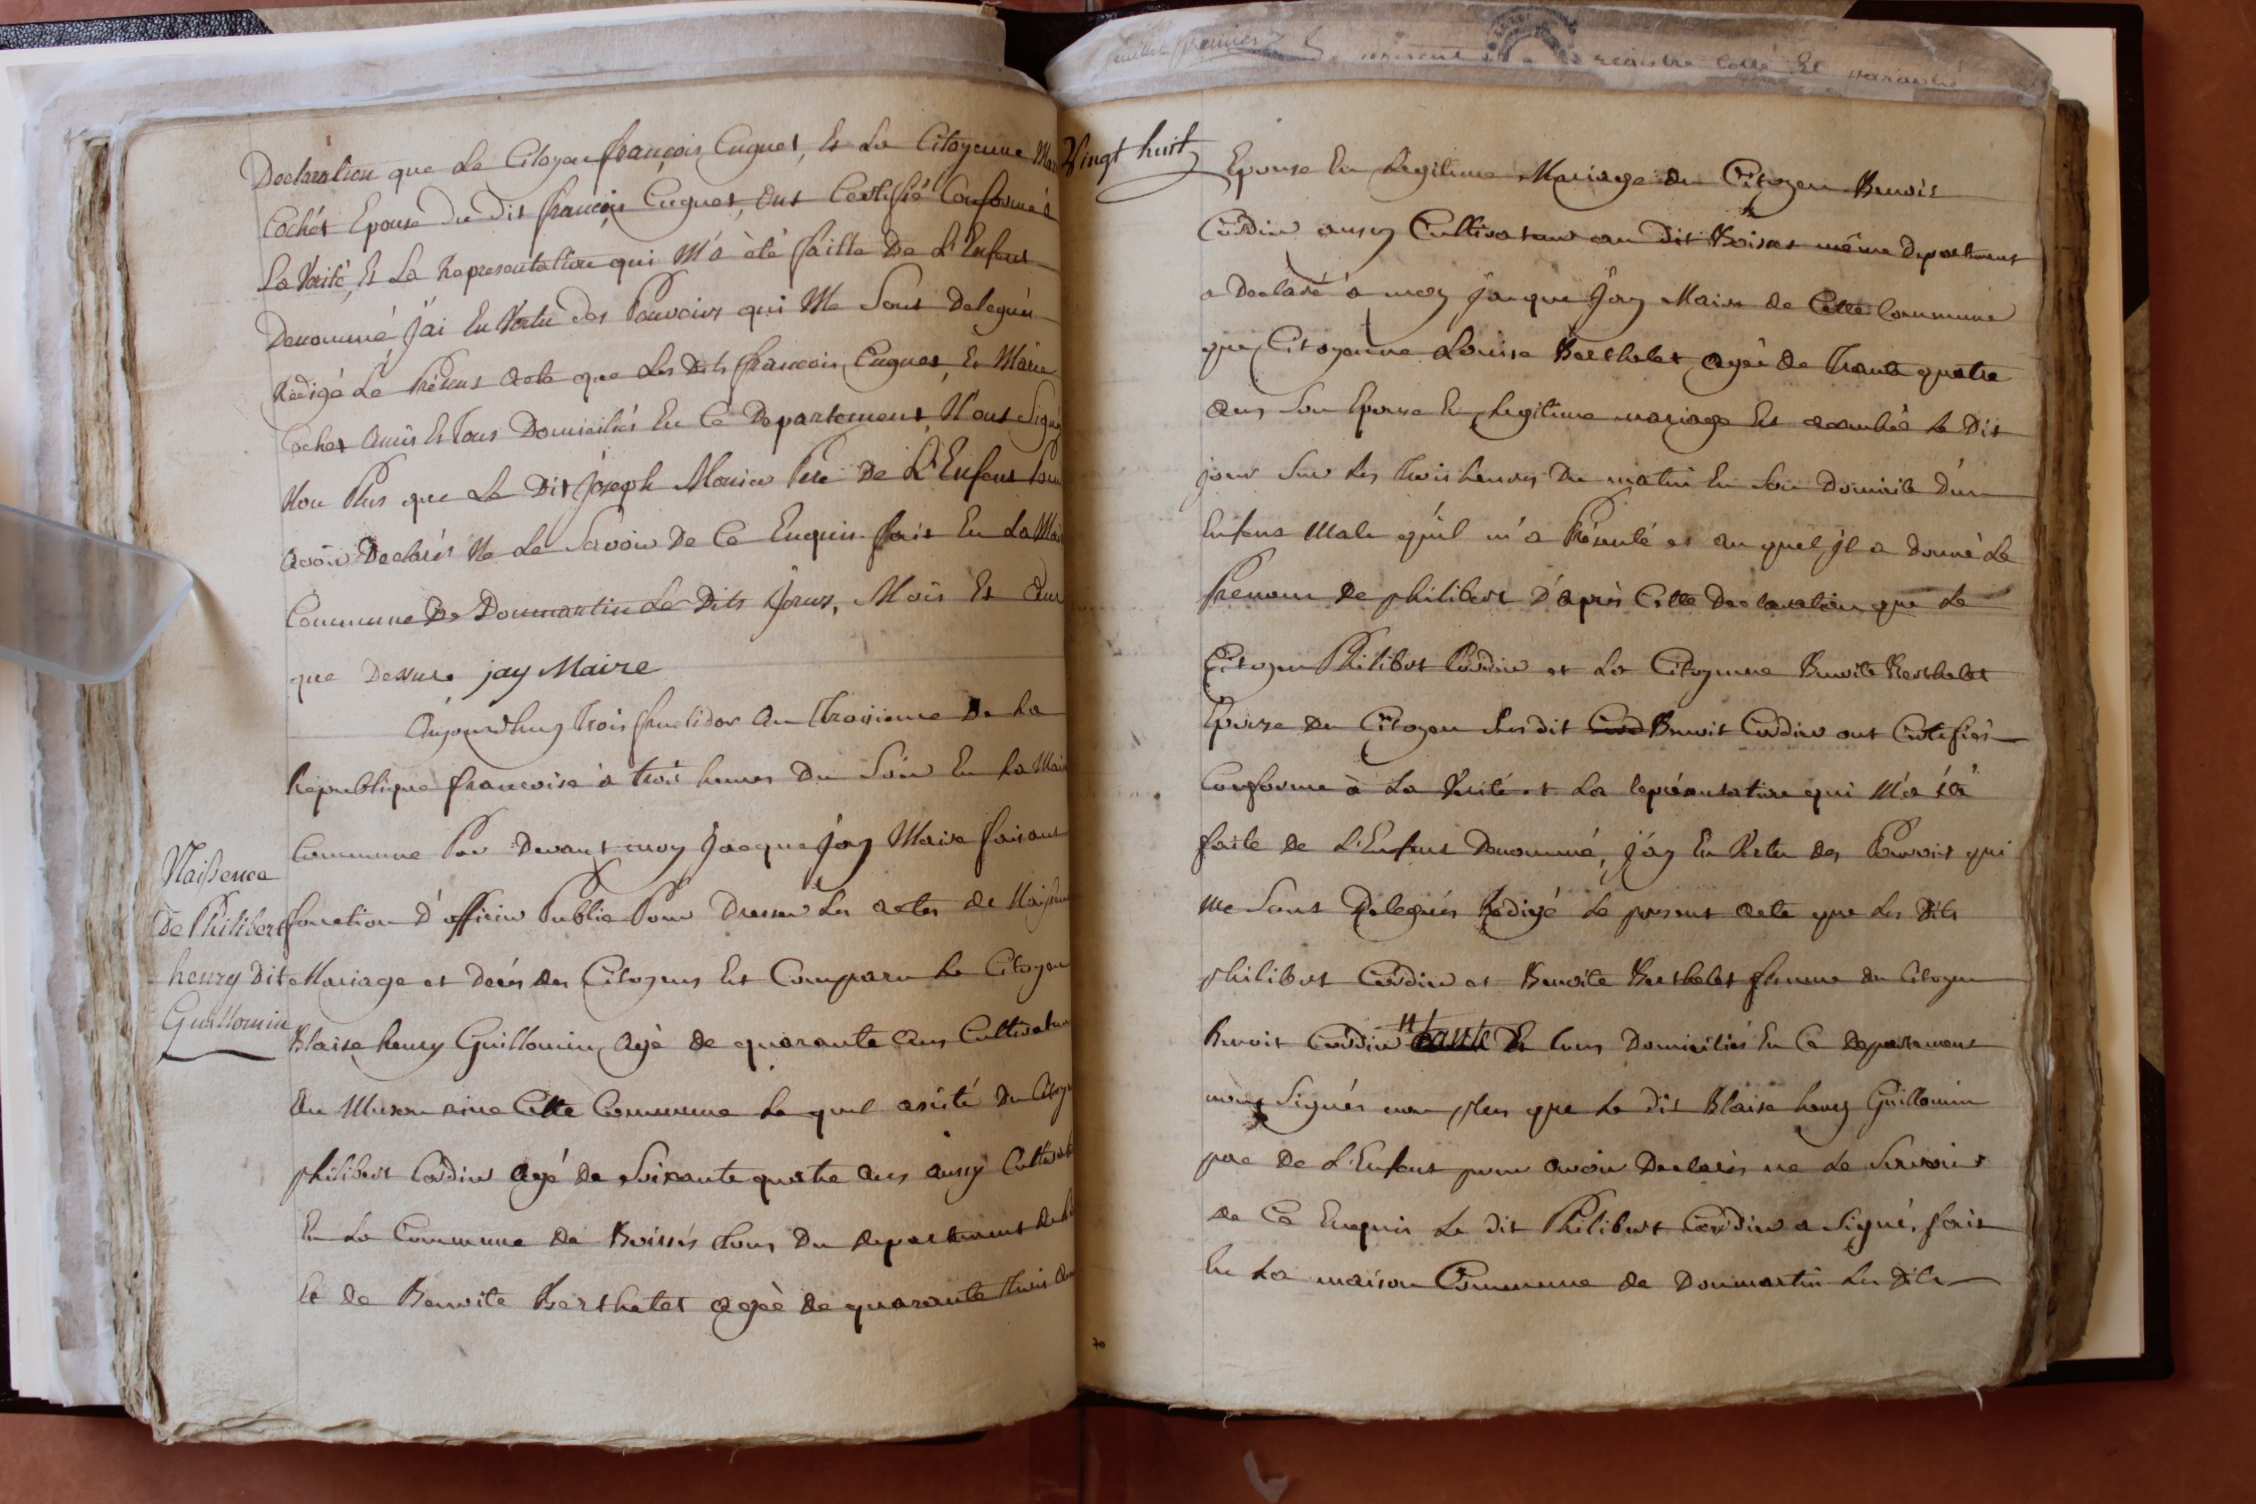 Declaration que Le Citoyen françois Cuguet, Et La Citoyenne Mar
Cochet Epouse du dit françois Cuguet, ont Certifié Conforme à
La Vérité, Et La Representation qui M'a été faitte De L'Enfant
Denommé j'ai En Vertu des Pouvoirs qui Me Sont Delegués
Rédigé Le Présent acte que Les dits françois Cuguet, Et Marie
Cochet amis Et Tous Domiciliés En Ce Departement, N'ont Signé
Non Plus que Le Dit Joseph Monier Pere De L'Enfant Pour
avoir Declarés Ne Le Savoir De Ce Enquis fait En La Mais
Commune De Dommartin Le Dits Jours, Mois Et an
que Dessus. jay Maire
Aujourdhuy Trois fructidor an Troisieme De La
Republique françoise à trois heures Du Soir En La Mais
Commune Par Devant moy Jacque Jay Maire faisant
Naissence
De Philibert
henry Dit
Guillomin
fonction D'officier Public Pour Dresser Les actes de Naissen
Mariage et decés des Citoyens Est Comparu Le Citoyen
Blaise henry Guillomin Agé de quarante ans Cultivateur
au cette Commune Le quel asisté Du Citoy
philibert Cordier agé de Soixante quatre ans aussy Cultivat
En La Commune de Boissés tous Du departement de
Et de Benoite Berthelet agée de quarante trois an
Vingt huit
Epouse En Legitime Mariage du Citoyen Benoit
Cordier aussy Cultivateur au dit Boisset même Departement
a Declaré à moy Jacque Jay Maire de Cette Commune
que Citoyenne Louise Berthelet agée de Trante quatre
ans Son Epouse En Legitime mariage Est acouchée Le Dit
jour Sur Les Trois heures Du matin En Son Domicile D'un
Enfant Male qu'il m'a Présenté et au quel jl a Donné Le
Prenom de philibert D'après Cette Declaration que Le
Citoyen Philibert Cordier et La Citoyenne Benoite Berthelet
Epouse du Citoyen Susdit Benoit Cordier ont Certifiés
Conforme à La Vérité et La representation qui M'a été
faite de L'Enfant Denommé, j'ay En Vertu des Pouvoirs qui
me Sont Delegués Redigé Le present acte que Les Dits
philibert Cordier et Benoite Berthelet femme du Citoyen
Benoit Cordier Et tous Domiciliés En Ce Departement
mont Signés non plus que Le dit Blaise henry Guillomin
pere De L'Enfant pour avoir Declarés ne Le Savoir
de Ce Enquis Le dit Philibert Cordier a Signé, fait
En La maison Commune de Dommartin Les Dits